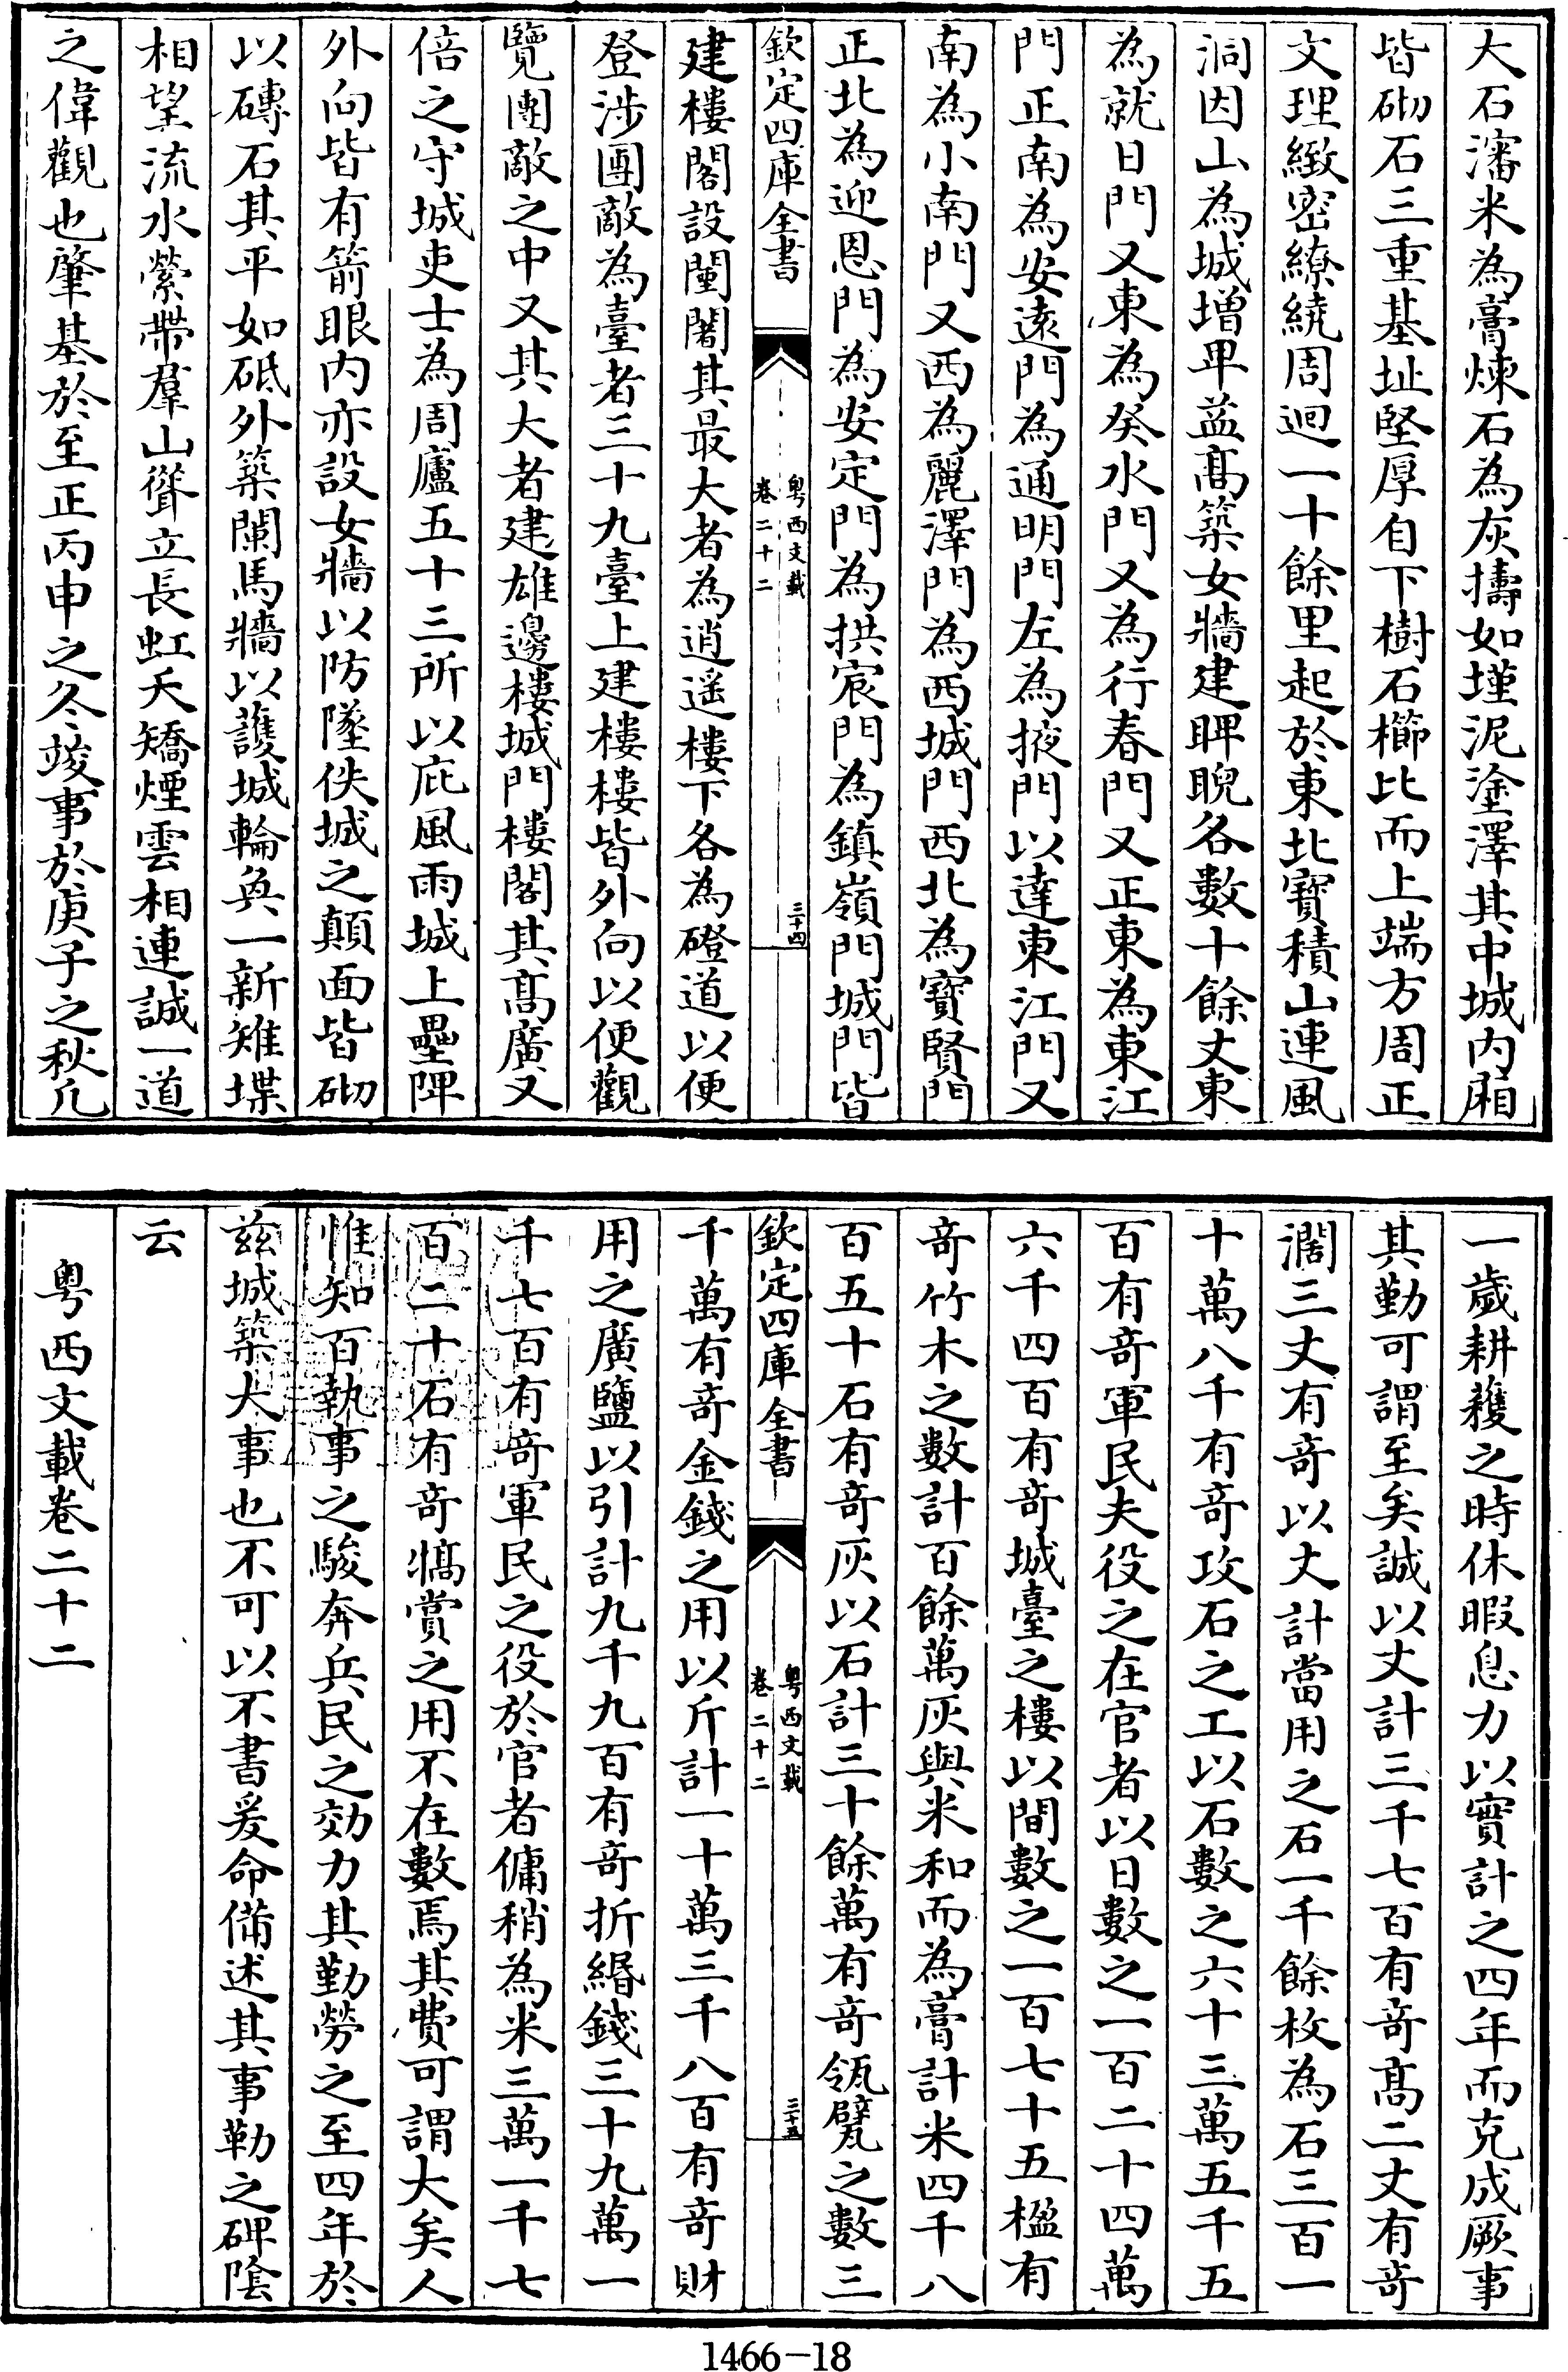 大石瀋米為膏煉石為灰擣如墐泥塗澤其中城内廂
皆砌石三重基址堅厚自下樹石櫛比而上端方周正
文理緻密繚繞周迴一十餘里起於東北寳積山連風
洞因山為城增卑益髙築女牆建睥睨各數十餘丈東
為就日門又東為癸水門又為行春門又正東為東江
門正南為安遠門為通明門左為掖門以達東江門又
南為小南門又西為麗澤門為西城門西北為寳賢門
正北為迎恩門為安定門為拱宸門為鎮嶺門城門皆
欽定四庫全書
粤西文載
卷二十二
三十四
建樓閣設闉闍其最大者為逍遙樓下各為磴道以便
登涉團敵為臺者三十九臺上建樓樓皆外向以便觀
覽團敵之中又其大者建雄邊樓城門樓閣其髙廣又
倍之守城吏士為周廬五十三所以庇風雨城上壘陴
外向皆有箭眼内亦設女牆以防墜佚城之顛面皆砌
以磚石其平如砥外築闌馬牆以護城輪奐一新雉堞
相望流水縈帶羣山聳立長虹夭矯煙雲相連誠一道
之偉觀也肇基於至正丙申之冬竣事於庚子之秋凡
一歲耕穫之時休暇息力以實計之四年而克成厥事
其勤可謂至矣誠以丈計三千七百有奇髙二丈有奇
濶三丈有奇以丈計當用之石一千餘枚為石三百一
十萬八千有奇攻石之工以石數之六十三萬五千五
百有奇軍民夫役之在官者以日數之一百二十四萬
六千四百有奇城臺之樓以間數之一百七十五楹有
奇竹木之數計百餘萬灰與米和而為膏計米四千八
百五十石有奇灰以石計三十餘萬有奇瓴甓之數三
欽定四庫全書
粤西文載
卷二十二
三十五
千萬有奇金錢之用以斤計一十萬三千八百有奇財
用之廣鹽以引計九千九百有奇折緡錢三十九萬一
千七百有奇軍民之役於官者傭稍為米三萬一千七
百二十石有奇犒賞之用不在數焉其費可謂大矣人
惟知百執事之駿奔兵民之効力其勤勞之至四年於
兹城築大事也不可以不書爰命備述其事勒之碑隂
云
粤西文載卷二十二
1466-18